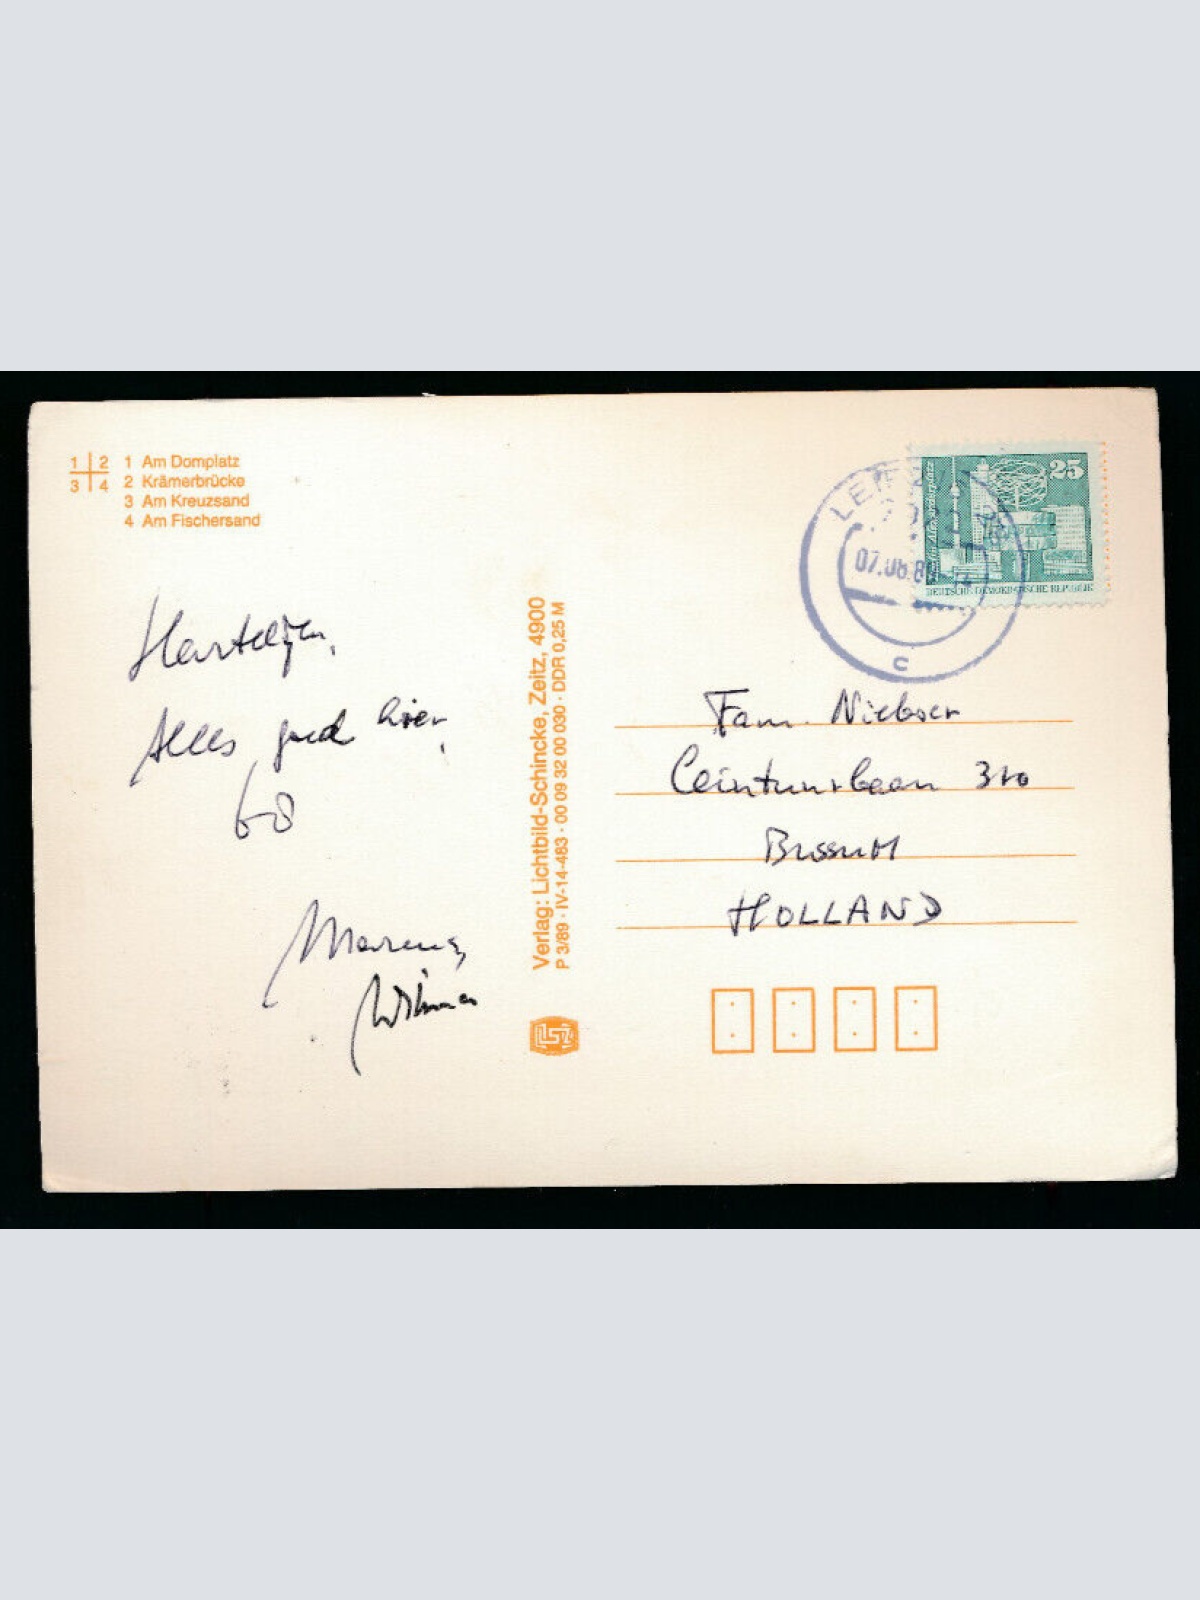 1 2 1 Am Domplatz
3 4 2 Krämerbrücke
3 Am Kreuzsand
4 Am Fischersand
Alles goed hier,
Verlag: Lichtbild-Schincke, Zeitz, 4900
P 3/89 · IV-14-483 · 00 09 32 00 030 · DDR 0,25 M
25
Berlin-Alexanderplatz
DEUTSCHE DEMOKRATISCHE REPUBLIK
07.06.89
c
Fam. Nieboer
Ceintuurbaan 310
BussuM
HOLLAND